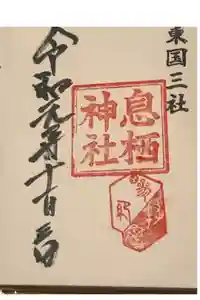 東国三社
息栖
神社
令和元年十一月三日